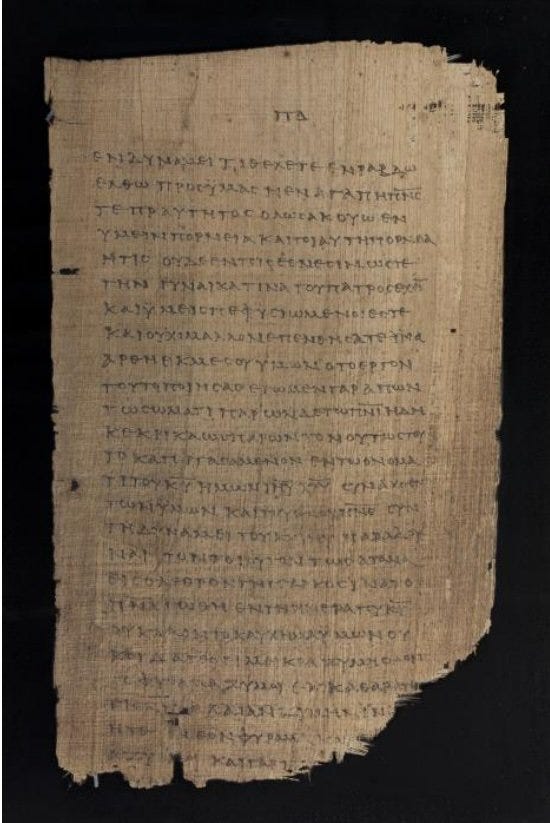 ΠΔ
ΕΝ ΔΥΝΑΜΕΙ ΤΙ ΘΕΛΕΤΕ ΕΝ ΡΑΒΔΩ
ΕΛΘΩ ΠΡΟϹ ΥΜΑϹ Η ΕΝ ΑΓΑΠΗ ΠΝϹ
ΤΕ ΠΡΑΥΤΗΤΟϹ ΟΛΩϹ ΕΝ
ΥΜΕΙΝ ΠΟΡΝΕΙΑ ΚΑΙ ΤΟΙΑΥΤΗ ΠΟΡΝΕΙΑ
ΗΤΙϹ ΟΥΔΕ ΕΝ ΤΟΙϹ ΕΘΝΕϹΙΝ ΩϹΤΕ
ΓΥΝΑΙΚΑ ΤΙΝΑ ΤΟΥ ΠΑΤΡΟϹ
ΚΑΙ ΥΜΕΙϹ ΠΕΦΥϹΙΩΜΕΝΟΙ ΕϹΤΕ
ΚΑΙ ΟΥΧΙ ΜΑΛΛΟΝ ΕΠΕΝΘΗϹΑΤΕ ΙΝΑ
ΑΡΘΗ ΕΚ ΜΕϹΟΥ ΥΜΩΝ Ο ΤΟ ΕΡΓΟΝ
ΤΟΥΤΟ ΠΟΙΗϹΑϹ ΕΓΩ ΜΕΝ ΓΑΡ ΑΠΩΝ
ΤΩ ϹΩΜΑΤΙ ΠΑΡΩΝ ΔΕ ΤΩ ΠΝΙ ΗΔΗ
ΚΕΚΡΙΚΑ ΩϹ ΠΑΡΩΝ ΤΟΝ ΟΥΤΩϹ ΤΟΥ
ΤΟ ΚΑΤΕΡΓΑϹΑΜΕΝΟΝ ΕΝ ΤΩ ΟΝΟΜΑ
ΤΙ ΤΟΥ ΚΥ ΗΜΩΝ ΙΗΥ ΧΡΥ ϹΥΝΑΧΘΕ
ΤΩΝ ΥΜΩΝ ΚΑΙ ΤΟΥ ΕΜΟΥ ΠΝϹ ϹΥΝ
ΤΗ ΔΥΝΑΜΕΙ ΤΟΥ ΠΑΡΑΔΟΥ
ΝΑΙ ΤΟΝ ΤΟΙΟΥΤΟΝ ΤΩ ϹΑΤΑΝΑ
ΕΙϹ ΟΛΕΘΡΟΝ ΤΗϹ ϹΑΡΚΟϹ ΙΝΑ ΤΟ
ΠΝΑ ϹΩΘΗ ΕΝ ΤΗ ΗΜΕΡΑ ΤΟΥ ΚΥ
ΟΥ ΚΑΛΟΝ ΤΟ ΚΑΥΧΗΜΑ ΥΜΩΝ ΟΥ
ΟΤΙ ΜΕΙΚΡΑ ΖΥΜΗ ΟΛΟΝ
ΤΟ ΦΥΡΑΜΑ ΖΥΜΟΙ
ΝΕΟΝ ΦΥΡΑΜΑ
ΚΑΙ ΓΑΡ